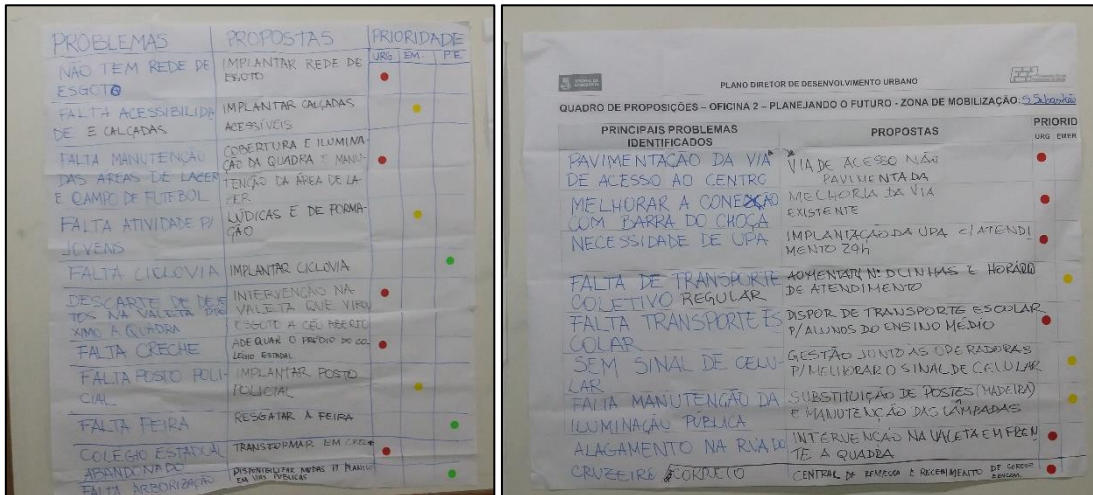 PROBLEMAS PROPOSTAS PRIORIDADE
URG EM. P.E
NÃO TEM REDE DE ESGOTO
IMPLANTAR REDE DE ESGOTO
FALTA ACESSIBILIDA
DE E CALÇADAS
IMPLANTAR CALÇADAS
ACESSÍVEIS
FALTA MANUTENÇÃO
DAS AREAS DE LAZER
E CAMPO DE FUTEBOL
COBERTURA E ILUMINA-
ÇÃO DA QUADRA E MANU-
TENÇÃO DA ÁREA DE LA-
ZER
FALTA ATIVIDADE P/
JOVENS
LÚDICAS E DE FORMA-
ÇÃO
FALTA CICLOVIA
IMPLANTAR CICLOVIA
DESCARTE DE DEJE
TOS NA VALETA PRÓ
XIMO A QUADRA
INTERVENÇÃO NA
VALETA QUE VIROU
ESGOTO A CÉU ABERTO
FALTA CRECHE
ADEQUAR O PRÉDIO DO CO
LÉGIO ESTADAL
FALTA POSTO POLI-
CIAL
IMPLANTAR POSTO
POLICIAL
FALTA FEIRA
RESGATAR A FEIRA
COLEGIO ESTADUAL
ABANDONADO
TRANSFORMAR EM CRECHE
FALTA ARBORIZAÇÃO
DISPONIBILIZAR MUDAS P/ PLANTIO
EM VIAS PÚBLICAS
PLANO DIRETOR DE DESENVOLVIMENTO URBANO
QUADRO DE PROPOSIÇÕES – OFICINA 2 – PLANEJANDO O FUTURO - ZONA DE MOBILIZAÇÃO: S. Sebastião
PRINCIPAIS PROBLEMAS
IDENTIFICADOS
PROPOSTAS
PRIORID
URG EMER
PAVIMENTAÇÃO DA VIA
DE ACESSO AO CENTRO
VIA DE ACESSO NÃO
PAVIMENTADA
MELHORAR A CONEXÃO
COM BARRA DO CHOÇA
MELHORIA DA VIA
EXISTENTE
NECESSIDADE DE UPA
IMPLANTAÇÃO DA UPA C/ ATENDI
MENTO 24h
FALTA DE TRANSPORTE
COLETIVO REGULAR
AUMENTAR Nº D LINHAS E HORÁRIO
DE ATENDIMENTO
FALTA TRANSPORTE ES
COLAR
DISPOR DE TRANSPORTE ESCOLAR
P/ ALUNOS DO ENSINO MÉDIO
SEM SINAL DE CELU-
LAR
GESTÃO JUNTO AS OPERADORAS
P/ MELHORAR O SINAL DE CELULAR
FALTA MANUTENÇÃO DA
ILUMINAÇÃO PÚBLICA
SUBSTITUIÇÃO DE POSTES (MADEIRA)
E MANUTENÇÃO DAS LÂMPADAS
ALAGAMENTO NA RUA DO
CRUZEIRO
INTERVENÇÃO NA VALETA EM FREN
TE A QUADRA
CORREIO
CENTRAL DE REMESSA E RECEBIMENTO DE